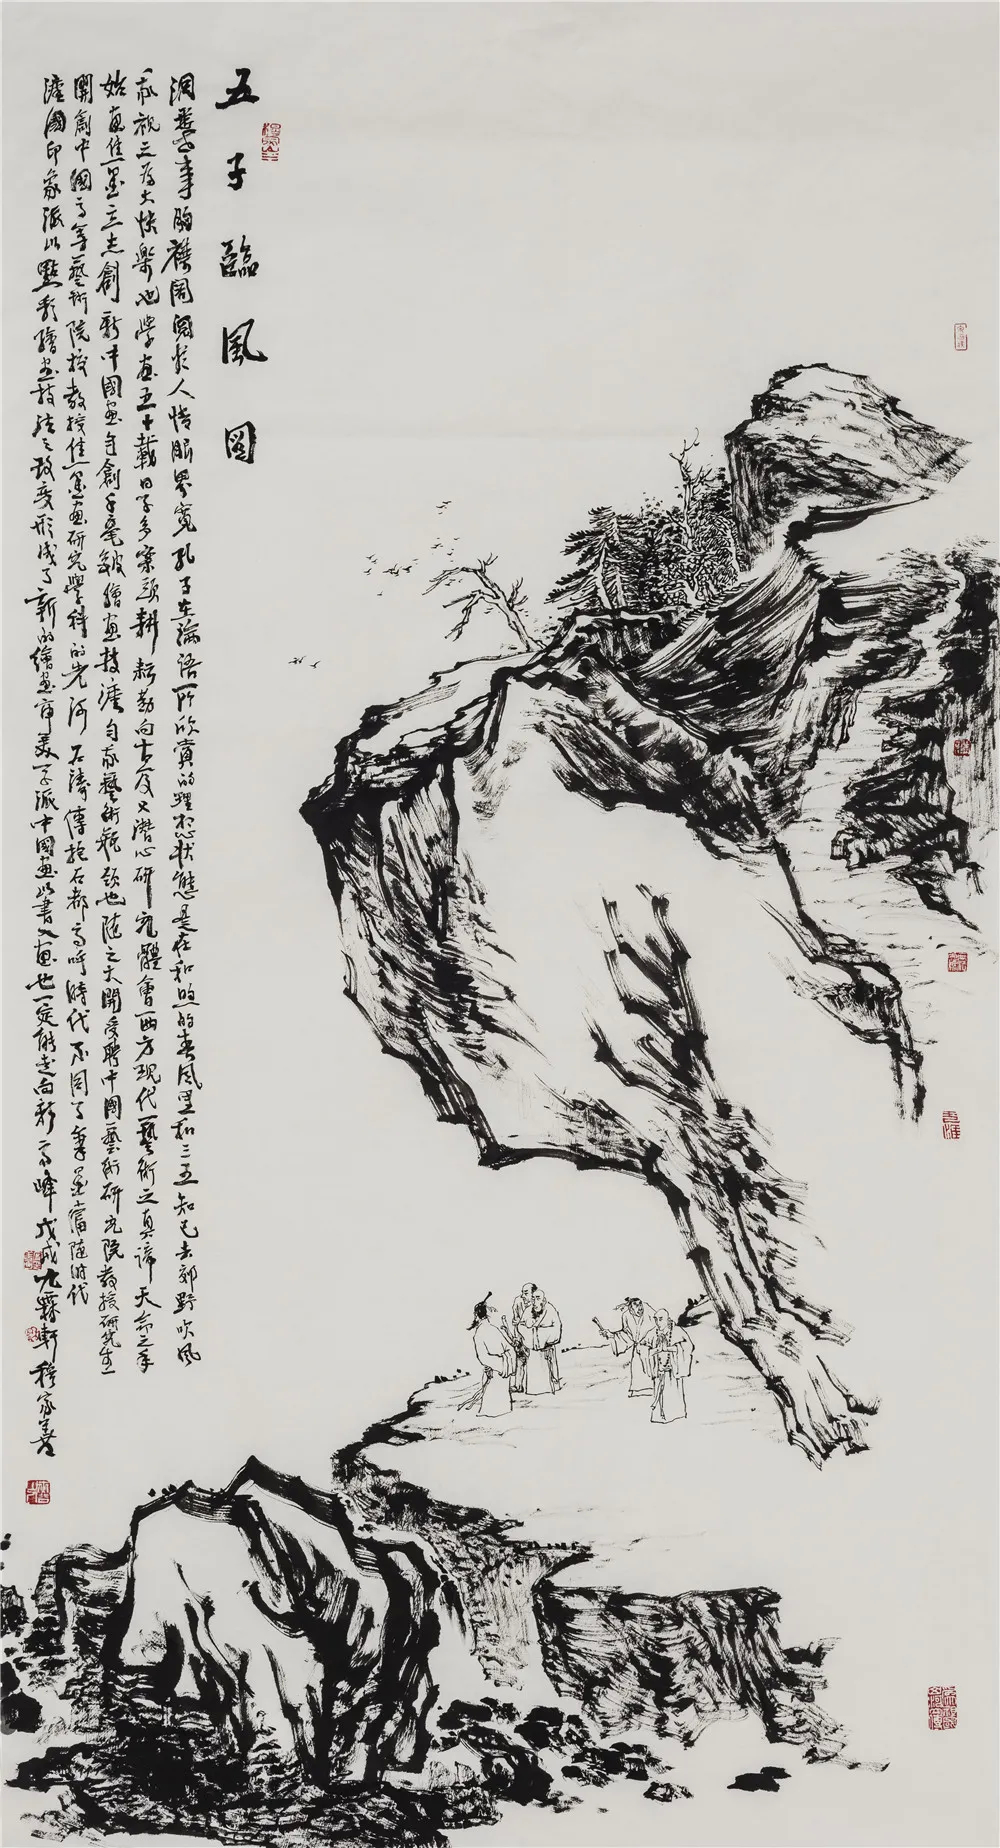 五子臨風图
洞悉世事胸襟闊閱尽人情眼界寬孔子在論語所欣賞的理想狀態是在和煦的春風里和三五知己去郊野吹風
我視之為大快樂也學画五十載日子多案頭耕耘勤向古人又潛心研究體會西方現代藝術之真諦天命之年
始画焦墨立志創新中國畫自創毫皴繪画技灋自我藝術瓶頸也随之大開受聘中國藝術研究院教授研究生
開創中國高等藝術院校教授焦墨画研究學科的先河石濤傅抱石都高呼時代不同了筆墨當随时代
灋國印象派以點彩繪畫技法之改變形成了新的繪畫審美一派中國畫以書入画也一定能走向新高峰戊戌九霖軒程家